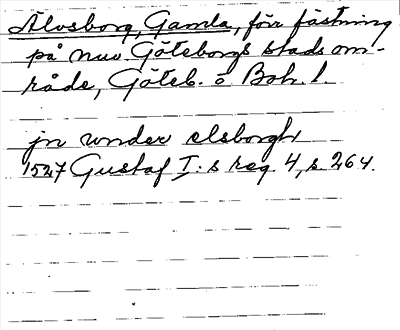 Älvsborg, Gamla, förr fästning
på nuv. Göteborgs stads om-
råde, Göteb. o Boh. l.
jn under elsborgh
1527 Gustaf I:s reg. 4, s 264.